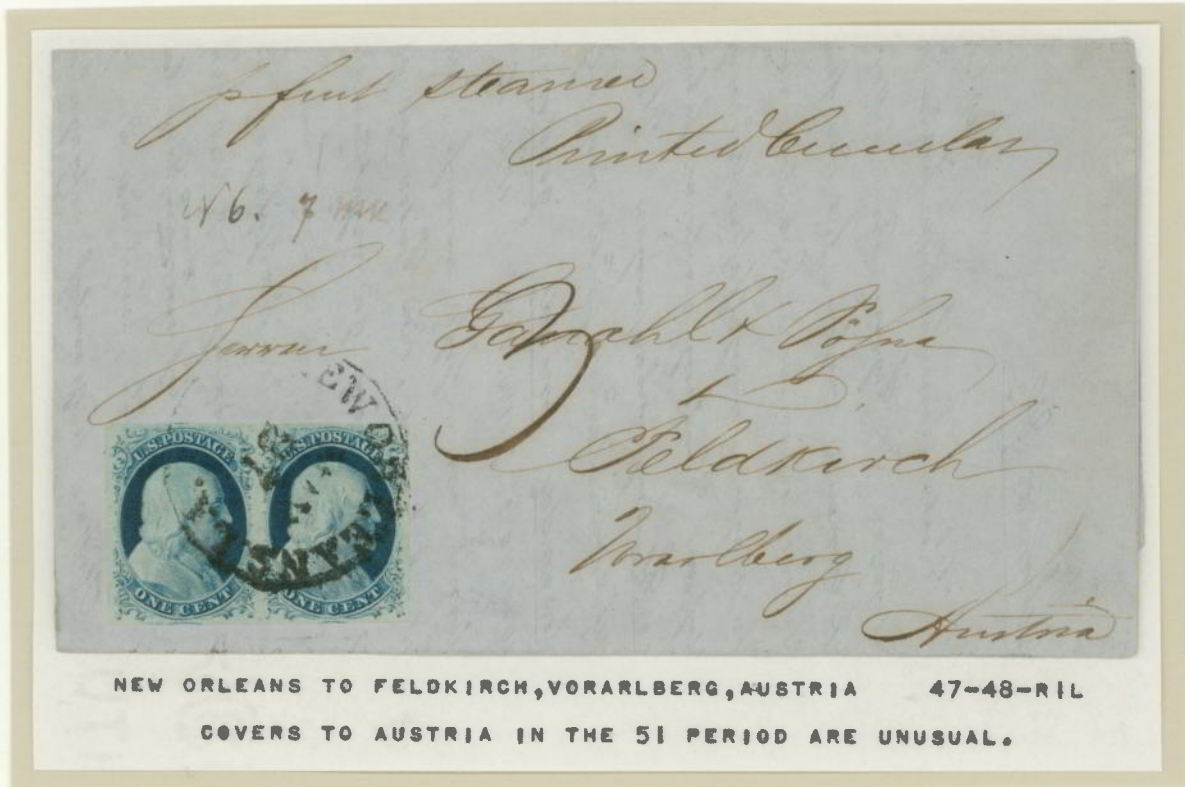 p first steamer
Printed Circular
N 6. 7
Herren Ganahl & Söhne
Feldkirch
Vorarlberg
Austria
NEW ORLEANS
U.S. POSTAGE U.S. POSTAGE
ONE CENT ONE CENT
NEW ORLEANS TO FELDKIRCH,VORARLBERG,AUSTRIA 47-48-RIL
COVERS TO AUSTRIA IN THE 51 PERIOD ARE UNUSUAL.